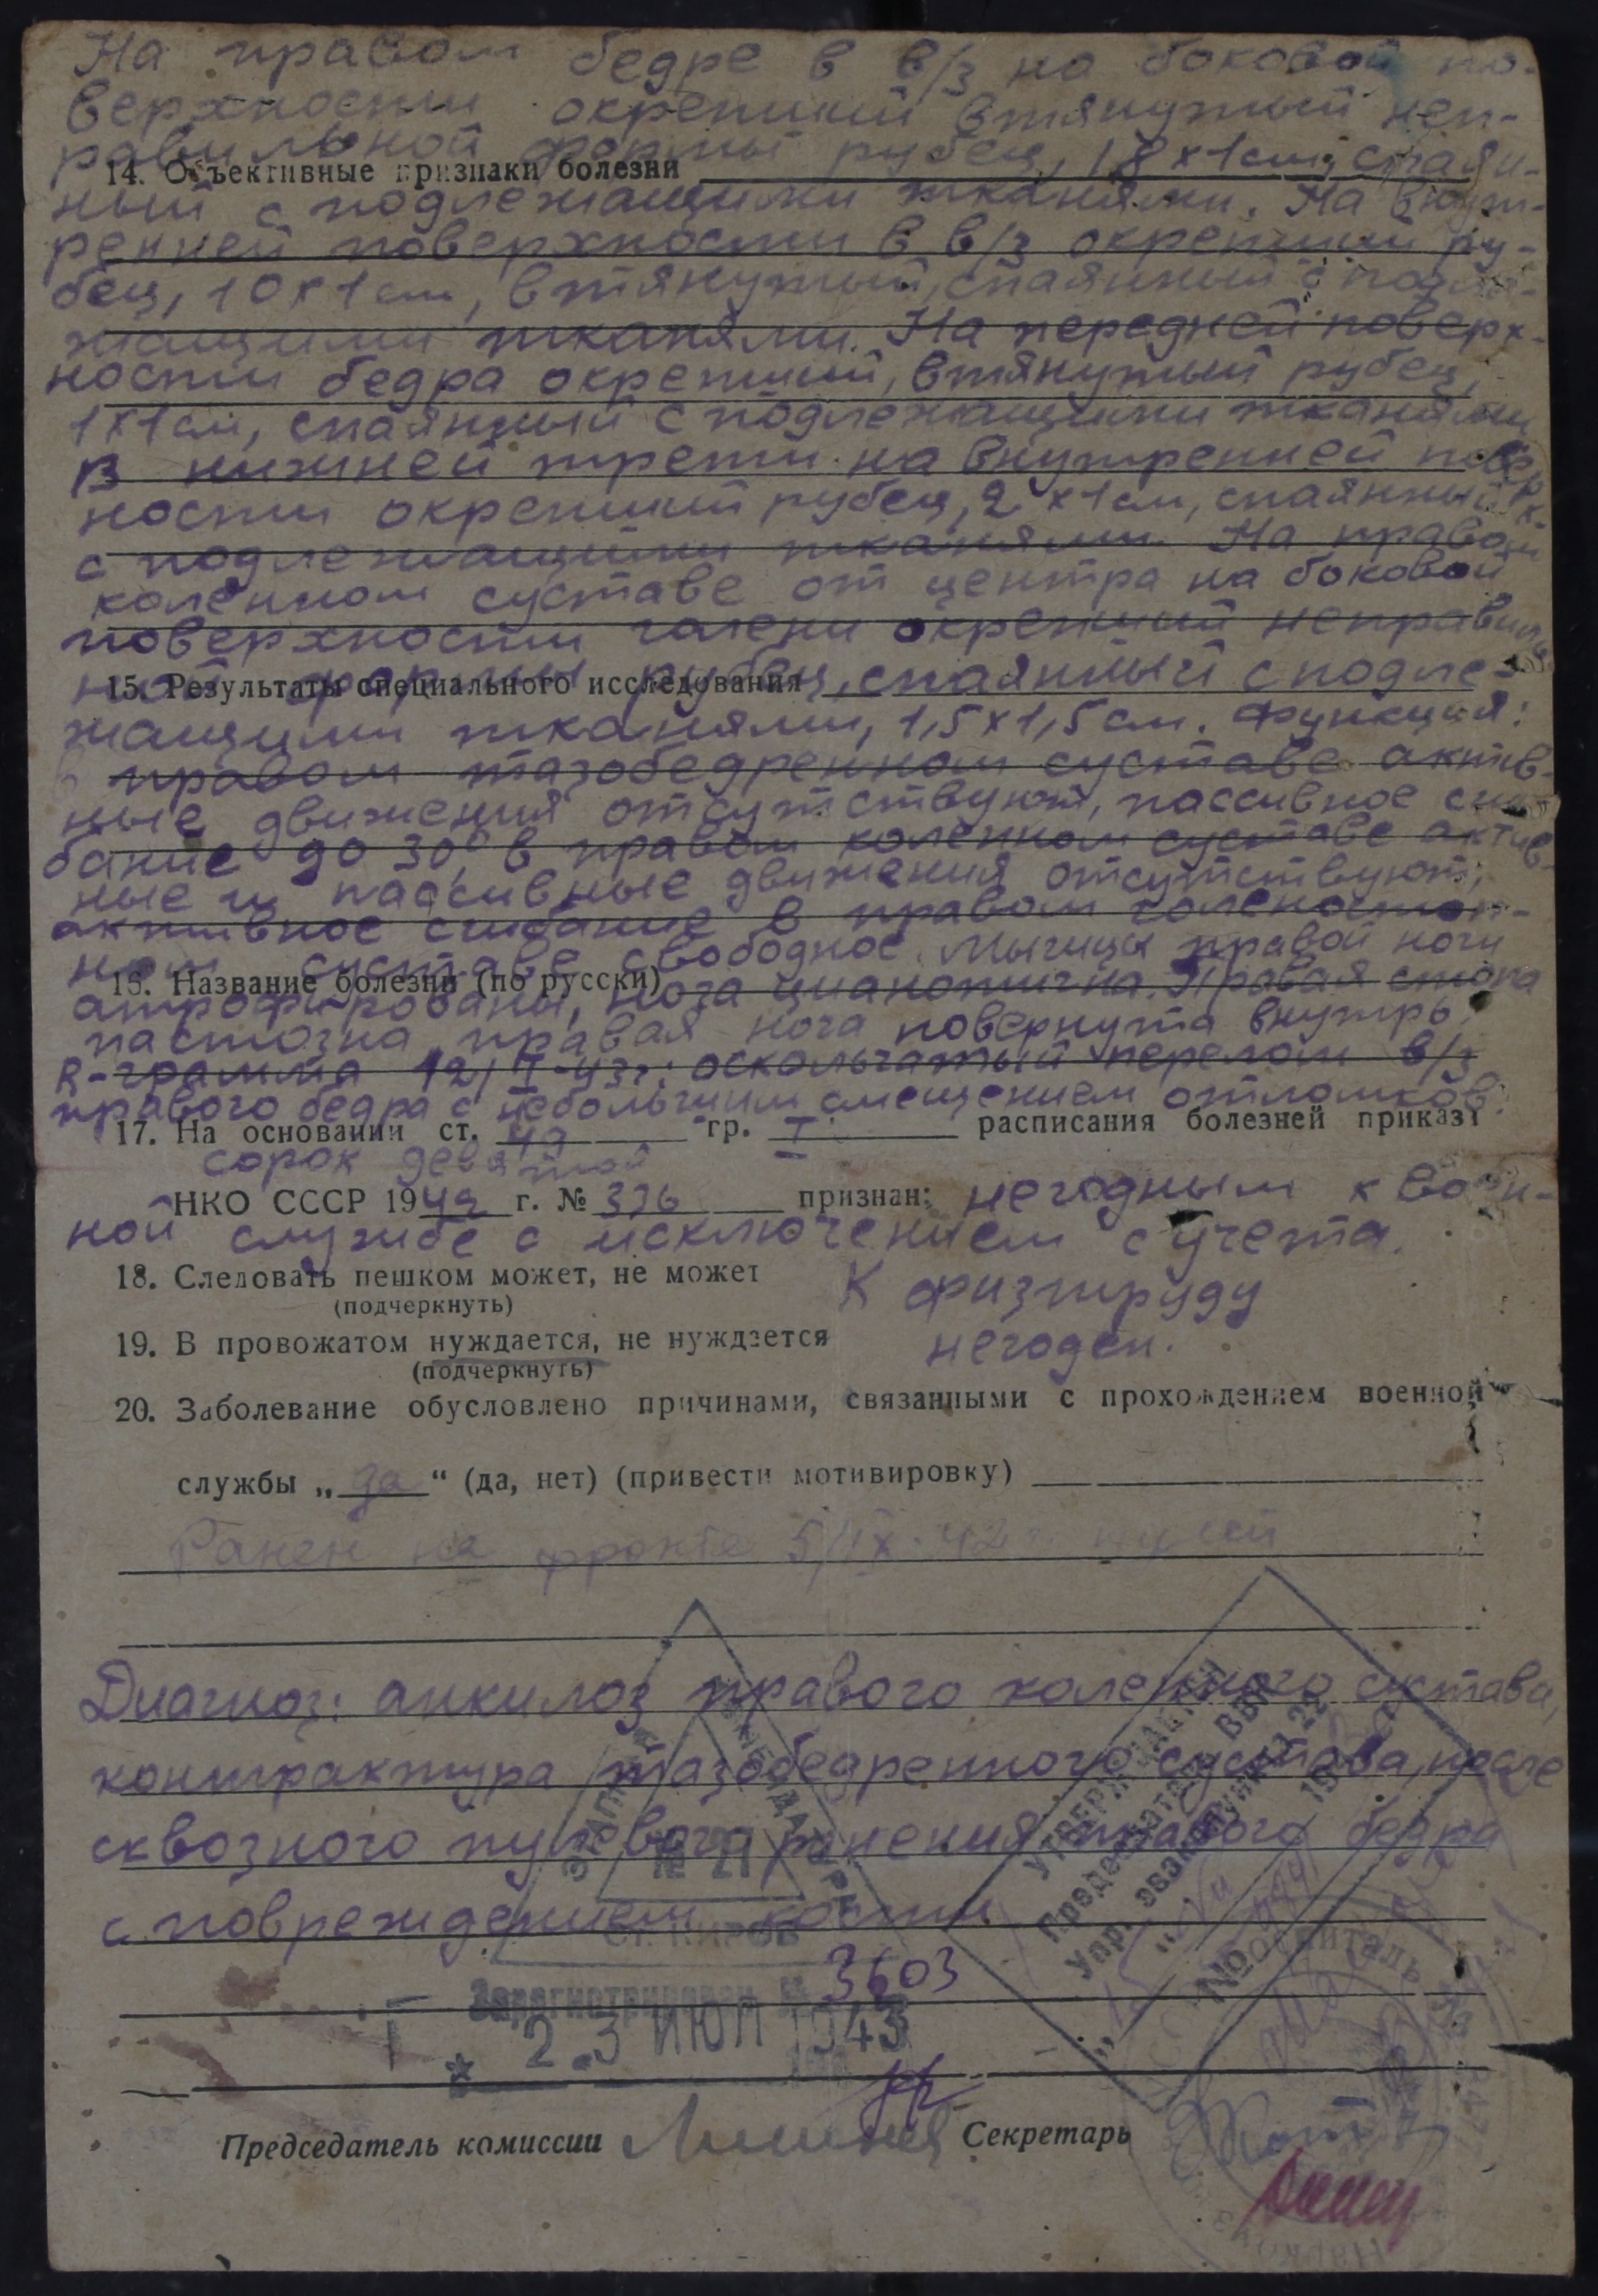 На правом бедре в в/з на боковой по-
верхности окрепший втянутый неп-
равильной формы рубец, 18х1см, спаян-
14. Объективные признаки болезни
ный с подлежащими тканями. На внут-
ренней поверхности в в/з окрепший ру-
бец, 10х1см, втянутый, спаянный с подле-
жащими тканями. На передней поверх-
ности бедра окрепший, втянутый рубец,
1х1см, спаянный с подлежащими тканями
В нижней трети на внутренней поверх-
ности окрепший рубец, 2х1см, спаянный
с подлежащими тканями. На правом
коленном суставе от центра на боковой
поверхности голени окрепший неправиль-
ной формы рубец, спаянный с подле-
15. Результаты специального исследования
жащими тканями, 1,5х1,5см. Функция:
в правом тазобедренном суставе актив-
ные движения отсутствуют, пассивное сги-
бание до 30°, в правом коленном суставе актив-
ные и пассивные движения отсутствуют;
активное сгибание в правом голеностоп-
ном суставе свободное. Мышцы правой ноги
16. Название болезни (по русски)
атрофированы, нога цианотична. Правая стопа
пастозна, правая нога повернута внутрь.
R-грамма 12/ -43г: оскольчатый перелом в/з
правого бедра с небольшим смещением отломков.
17. На основании ст. 49 гр. I расписания болезней приказа
сорок девятой
НКО СССР 1942 г. № 336 признан: негодным к воен-
ной службе с исключением с учета.
18. Следовать пешком может, не может
(подчеркнуть)
К физтруду
19. В провожатом нуждается, не нуждается
негоден.
(подчеркнуть)
20. Заболевание обусловлено причинами, связанными с прохождением военной
службы „да“ (да, нет) (привести мотивировку)
Ранен на фронте 5/IX-42г. пулей
Диагноз: анкилоз правого коленного сустава,
контрактура тазобедренного сустава, после
сквозного пулевого ранения правого бедра
с повреждением кости
УТВЕРЖДАЮ
Председатель ВВК
Упр. эвакопункта
№ 21
ст. КИРОВ
Зарегистрирован № 3603
23 ИЮЛ 1943
Председатель комиссии
Секретарь